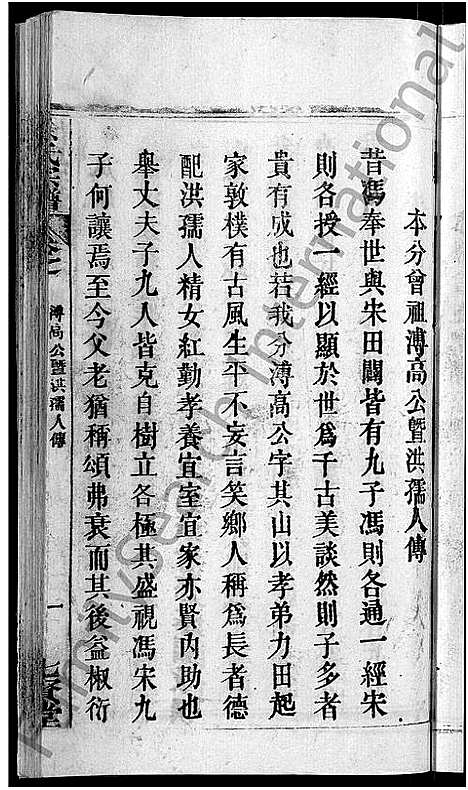 本分曾祖溥高公暨洪孺人傳
昔馮奉世與宋田闢皆有九子馮則各通一經宋
則各授一經以顯於世爲千古美談然則子多者
貴有成也若我分溥高公字其山以孝弟力田起
家敦樸有古風生平不妄言笑鄉人稱爲長者德
配洪孺人精女紅勤孝養宜室宜家亦賢內助也
舉丈夫子九人皆克自樹立各極其盛視馮宋九
子何讓焉至今父老猶稱頌弗衰而其後益椒衍
氏宗譜
溥高公暨洪孺人傳
一
堂
FamilySearch International